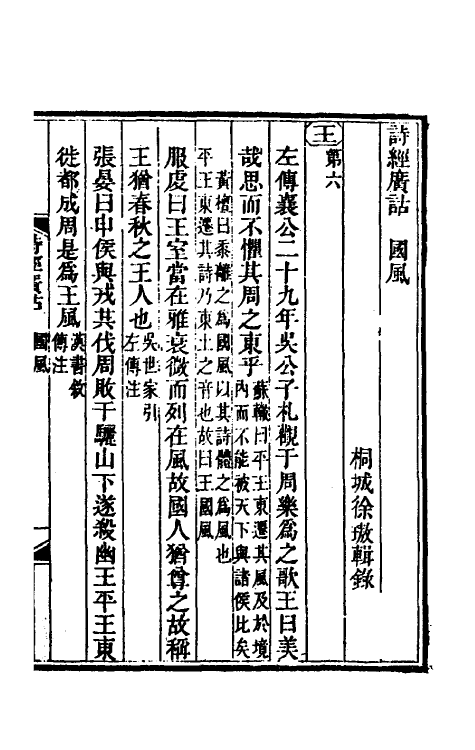 詩經廣詁　國風
桐城徐璈輯錄
王第六
左傳襄公二十九年吳公子札觀于周樂爲之歌王曰美
哉思而不懼其周之東乎蘇轍曰平王東遷其風及於境
內而不能被天下與諸侯比矣
黃櫄曰黍離之爲國風以其詩體之爲風也
平王東遷其詩乃東土之音也故曰王國風
服虔曰王室當在雅衰微而列在風故國人猶尊之故稱
王猶春秋之王人也吳世家引
左傳注
張晏曰申侯與戎共伐周敗于驪山下遂殺幽王平王東
徙都成周是爲王風漢書敘
傳注
詩經廣詁　國風